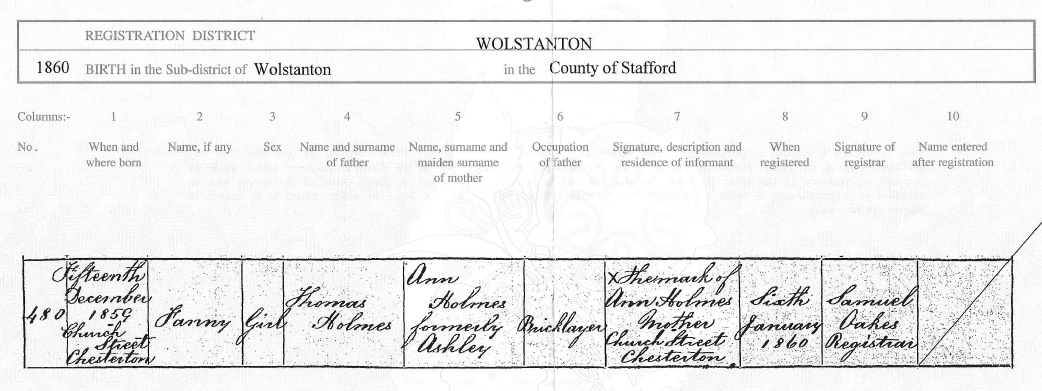 REGISTRATION DISTRICT WOLSTANTON
1860 BIRTH in the Sub-district of Wolstanton in the County of Stafford
Columns:- 1 2 3 4 5 6 7 8 9 10
No. When and where born Name, if any Sex Name and surname of father Name, surname and maiden surname of mother Occupation of father Signature, description and residence of informant When registered Signature of registrar Name entered after registration
480
Fifteenth
December
1859
Church
Street
Chesterton
Fanny
Girl
Thomas
Holmes
Ann
Holmes
formerly
Ashley
Bricklayer
X The mark of
Ann Holmes
Mother
Church Street
Chesterton
Sixth
January
1860
Samuel
Oakes
Registrar